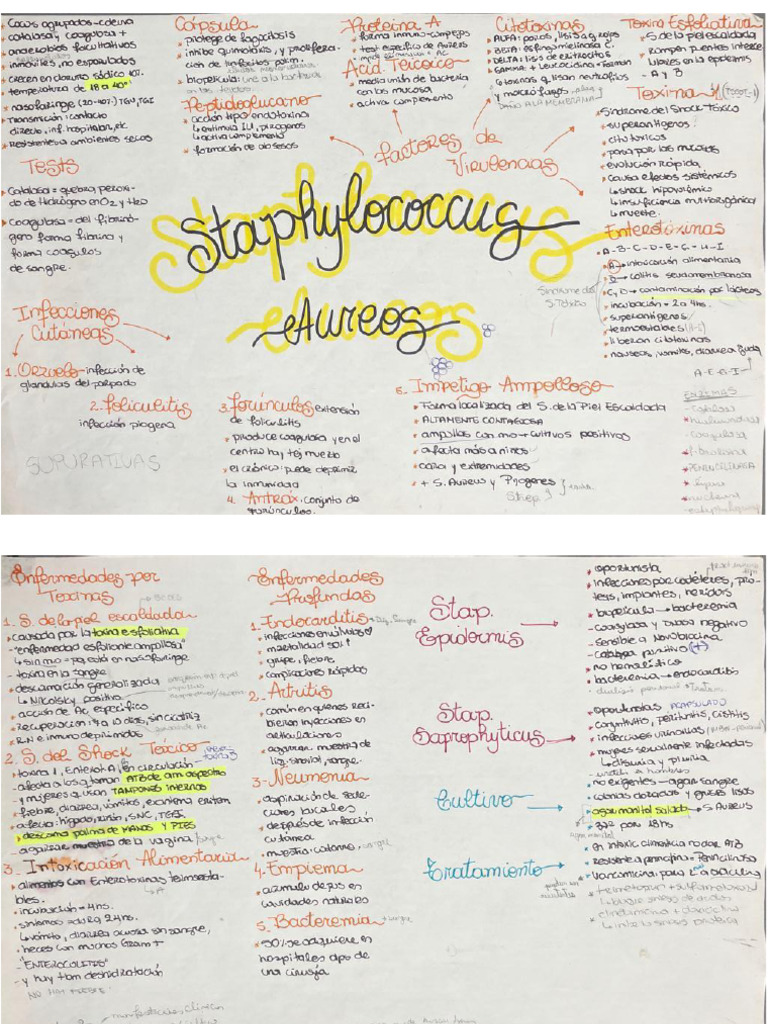 Cocos agrupados - cadena
catalasa y coagulasa +
anaerobios facultativos
inmoviles, no esporulados
crecen en cloruro sódico 10%
temperatura de 18 a 40°
nasofaringe (20-40%) TGU, TGI
Transmisión: contacto
directo, inf. hospitalar, etc.
Resistente a ambientes secos
Tests
Catalasa = quebra peroxi-
do de Hidrógeno en O2 y H2O
Coagulasa = del fibrinó-
geno forma fibrina y
forma coágulos
de sangre.
Cápsula
protege de fagocitosis
inhibe quimiotaxis, y prolifera-
ción de linfocitos
biopelicula: une a la bacteria
Peptidoglucano
acción tipo endotoxina
estimula IL1, pirogenos
activa complemento
formación de absesos
Proteina A
forma inmuno-complejos
test especifico de Aureus
Acid. Teicoico
media unión de bacteria
con las mucosa
activa complemento
Factores de
Virulencias
Citotoxinas
ALFA: poros, lisis a g. rojos
BETA: esfingomielinasa C.
DELTA: lisis de eritrocitos
GAMMA + Leucocisina = forman
toxinas q lisan neutrofilos
y macrofagos
DAÑO A LA MEMBRANA
Toxina Esfoliativa
S. de piel escaldada
rompen puentes interce-
lulares en la epidermis
- A y B
Toxina 1 (TSST-1)
Sindrome del Shock Tóxico
superantigenos
citotoxicos
pasa por las mucosas
evolución rápida
causa efectos sistémicos
shock hipovolémico
insuficiencia multiorgánica
muerte.
Enterotoxinas
A-B-C-D-E-G-H-I
A → intoxicación alimentaria
B → colitis seudomembranosa
C, D → contaminación por lácteos
incubación = 2 a 4hs.
superantígenos
termoestables
liberan citotoxinas
nauseas, vomitos, diarrea aguda
A-E-G-I
Sindrome del
S. Toxico
Staphylococcus
Aureos
Infecciones
Cutáneas
1. Orzuelo - infección de
glandulas del parpado
2. Foliculitis
infección piogena
SUPURATIVAS
3. Forúnculos extensión
de foliculitis
produce coagulasa y en el
centro hay tej muerto
el crónico: puede deprimir
la inmunidad
4. Antrax: conjunto de
forúnculos.
6. Impetigo Ampolloso
Forma localizada del S. de la Piel Escaldada
ALTAMENTE CONTAGIOSA
ampollas con mo + cultivos positivos
afecta más a niños
cara y extremidades
+ S. Aureus y Piogenes
Strep.
ENZIMAS
catalasa
hialuronidasa
coagulasa
fibrinolisina
PENICILINASA
lipasa
nucleasa
Enfermedades por
Toxinas
1. S. de la piel escaldada
causada por la toxina esfoliativa
"enfermedad esfoliante ampollosa"
sin mo = pq está en nasofaringe
toxina en la sangre
descamación generalizada
Nikolsky positivo
acción de Ac. especifico
recuperación: 7 a 10 dias, sin cicatriz
RN e inmunodeprimidos
2. S. del Shock Toxico
toxina 1, Enterot A, en circulación
afecta a los q toman ATB de am. aspectro
y mujeres q usan TAMPONES internos
fiebre, diarrea, vómitos, exantema eritem
afecta: higado, riñon, SNC, TGI
descama palma de MANOS y PIES
agarrar muestra de la vagina / sangre
3. Intoxicación Alimentaria
alimentos con Enterotoxinas termoesta-
bles.
incubación = 4hs.
sintomas = dura 24hs.
vomito, diarrea acuosa sin sangre,
heces con muchos Gram +
"ENTEROCOLITIS"
y hay tam deshidratación
NO HAY FIEBRE!
Enfermedades
Profundas
1. Endocarditis
infecciones en valvulas
mortalidad 50%
gripe, fiebre,
complicaciones rápidas
2. Artritis
común en quienes reci-
bieron inyecciones en
articulaciones
agarran muestra de
liq. sinovial, sangre.
3. Neumonia
aspiración de secre-
ciones bucales
después de infección
cutánea
muestra: catarro, sangre
4. Empiema
acumulo de pus en
cavidades naturales
5. Bacteremia
50% se adquiere en
hospitales dps de
una cirugía
Stap.
Epidermis
oportunista
infecciones por catéteres, pró-
tesis, implantes, heridas
biopelicula → bacteremia
coagulasa y DNasa negativo
Sensible a Novobiocina
catalasa positivo (+)
no hemolítico
bacteremia → endocarditis
Stap.
Saprophyticus
oportunistas CAPSULADO
conjuntivitis, peritonitis, cistitis
infecciones urinarias
mujeres sexualmente infectadas
disuria y piuria
uretritis en hombres
Cultivo
no exigentes - agar sangre
colonias doradas y bordes lisos
agar manitol salado → S. AUREUS
37° por 18hs
Tratamiento
en intoxic. alimenticia no dar ATB
resistente a principio = Penicilinasa
vancomicina, para